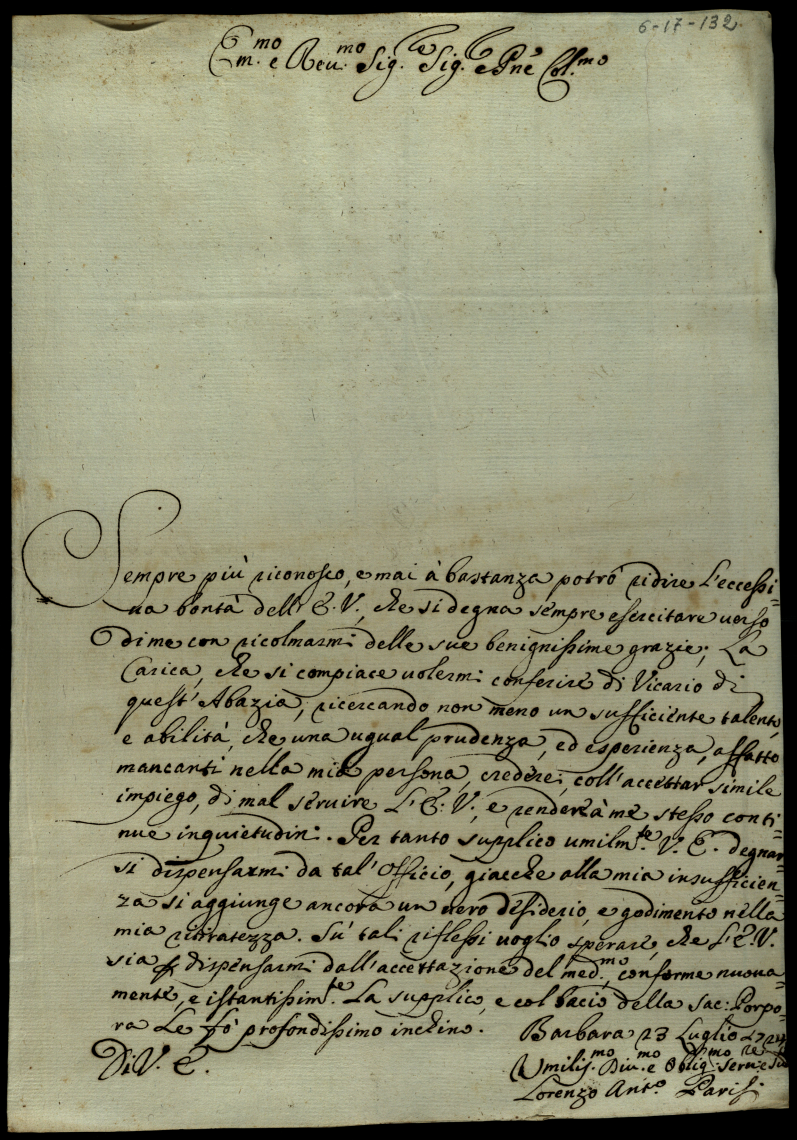 6-17-132.
Em.mo e Reu.mo Sig.re Sig.re e Pñe Col.mo
Sempre più riconosco, e mai à bastanza potrò ridire l'eccessi-
ua bontà dell' E. V., che si degna sempre esercitare uerso
di me con ricolmarmi delle sue benignissime grazie; La
Carica, che si compiace uolermi conferire di Vicario di
quest' Abazia, ricercando non meno un sufficiente talento,
e abilità, che una ugual prudenza, ed esperienza, affatto
mancanti nella mia persona, crederei, coll' accettar simile
impiego, di mal seruire L' E. V., e rendere à me stesso conti-
nue inquietudini. Per tanto supplico umilm.te V. E. degnar-
si dispensarmi da tal' Officio, giacche alla mia insufficien-
za si aggiunge ancora un uero desiderio, e godimento nella
mia ritiratezza. Sù tali riflessi uoglio sperare, che l' E. V.
sia dispensarmi dall' accettazione del med.mo, conforme nuoua-
mente, e istantissim.te La supplico, e col bacio della Sac: Porpo-
ra Le fò profondissimo inchino. Barbara 23 Luglio
Di V. E.
Umilis.mo Diu.mo e Oblig.mo Seru.re
Lorenzo Ant.o Parisi